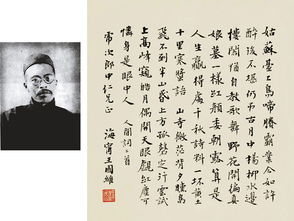 姑蘇臺上烏啼曉霸業今如許
醉後不堪仍弔古月中楊柳水邊
樓閣猶自教歌舞 野花開徧真
娘墓絕代紅顏委朝露算是
人生贏得處千秋詩料一抔黃土
十里寒螿語 山寺微茫背夕曛鳥
飛不到半山昏上方孤磬定行雲試
上高峰窺皓月偶開天眼覷紅塵可
憐身是眼中人 人間詞二首
次郎仁兄正
海寧王國維